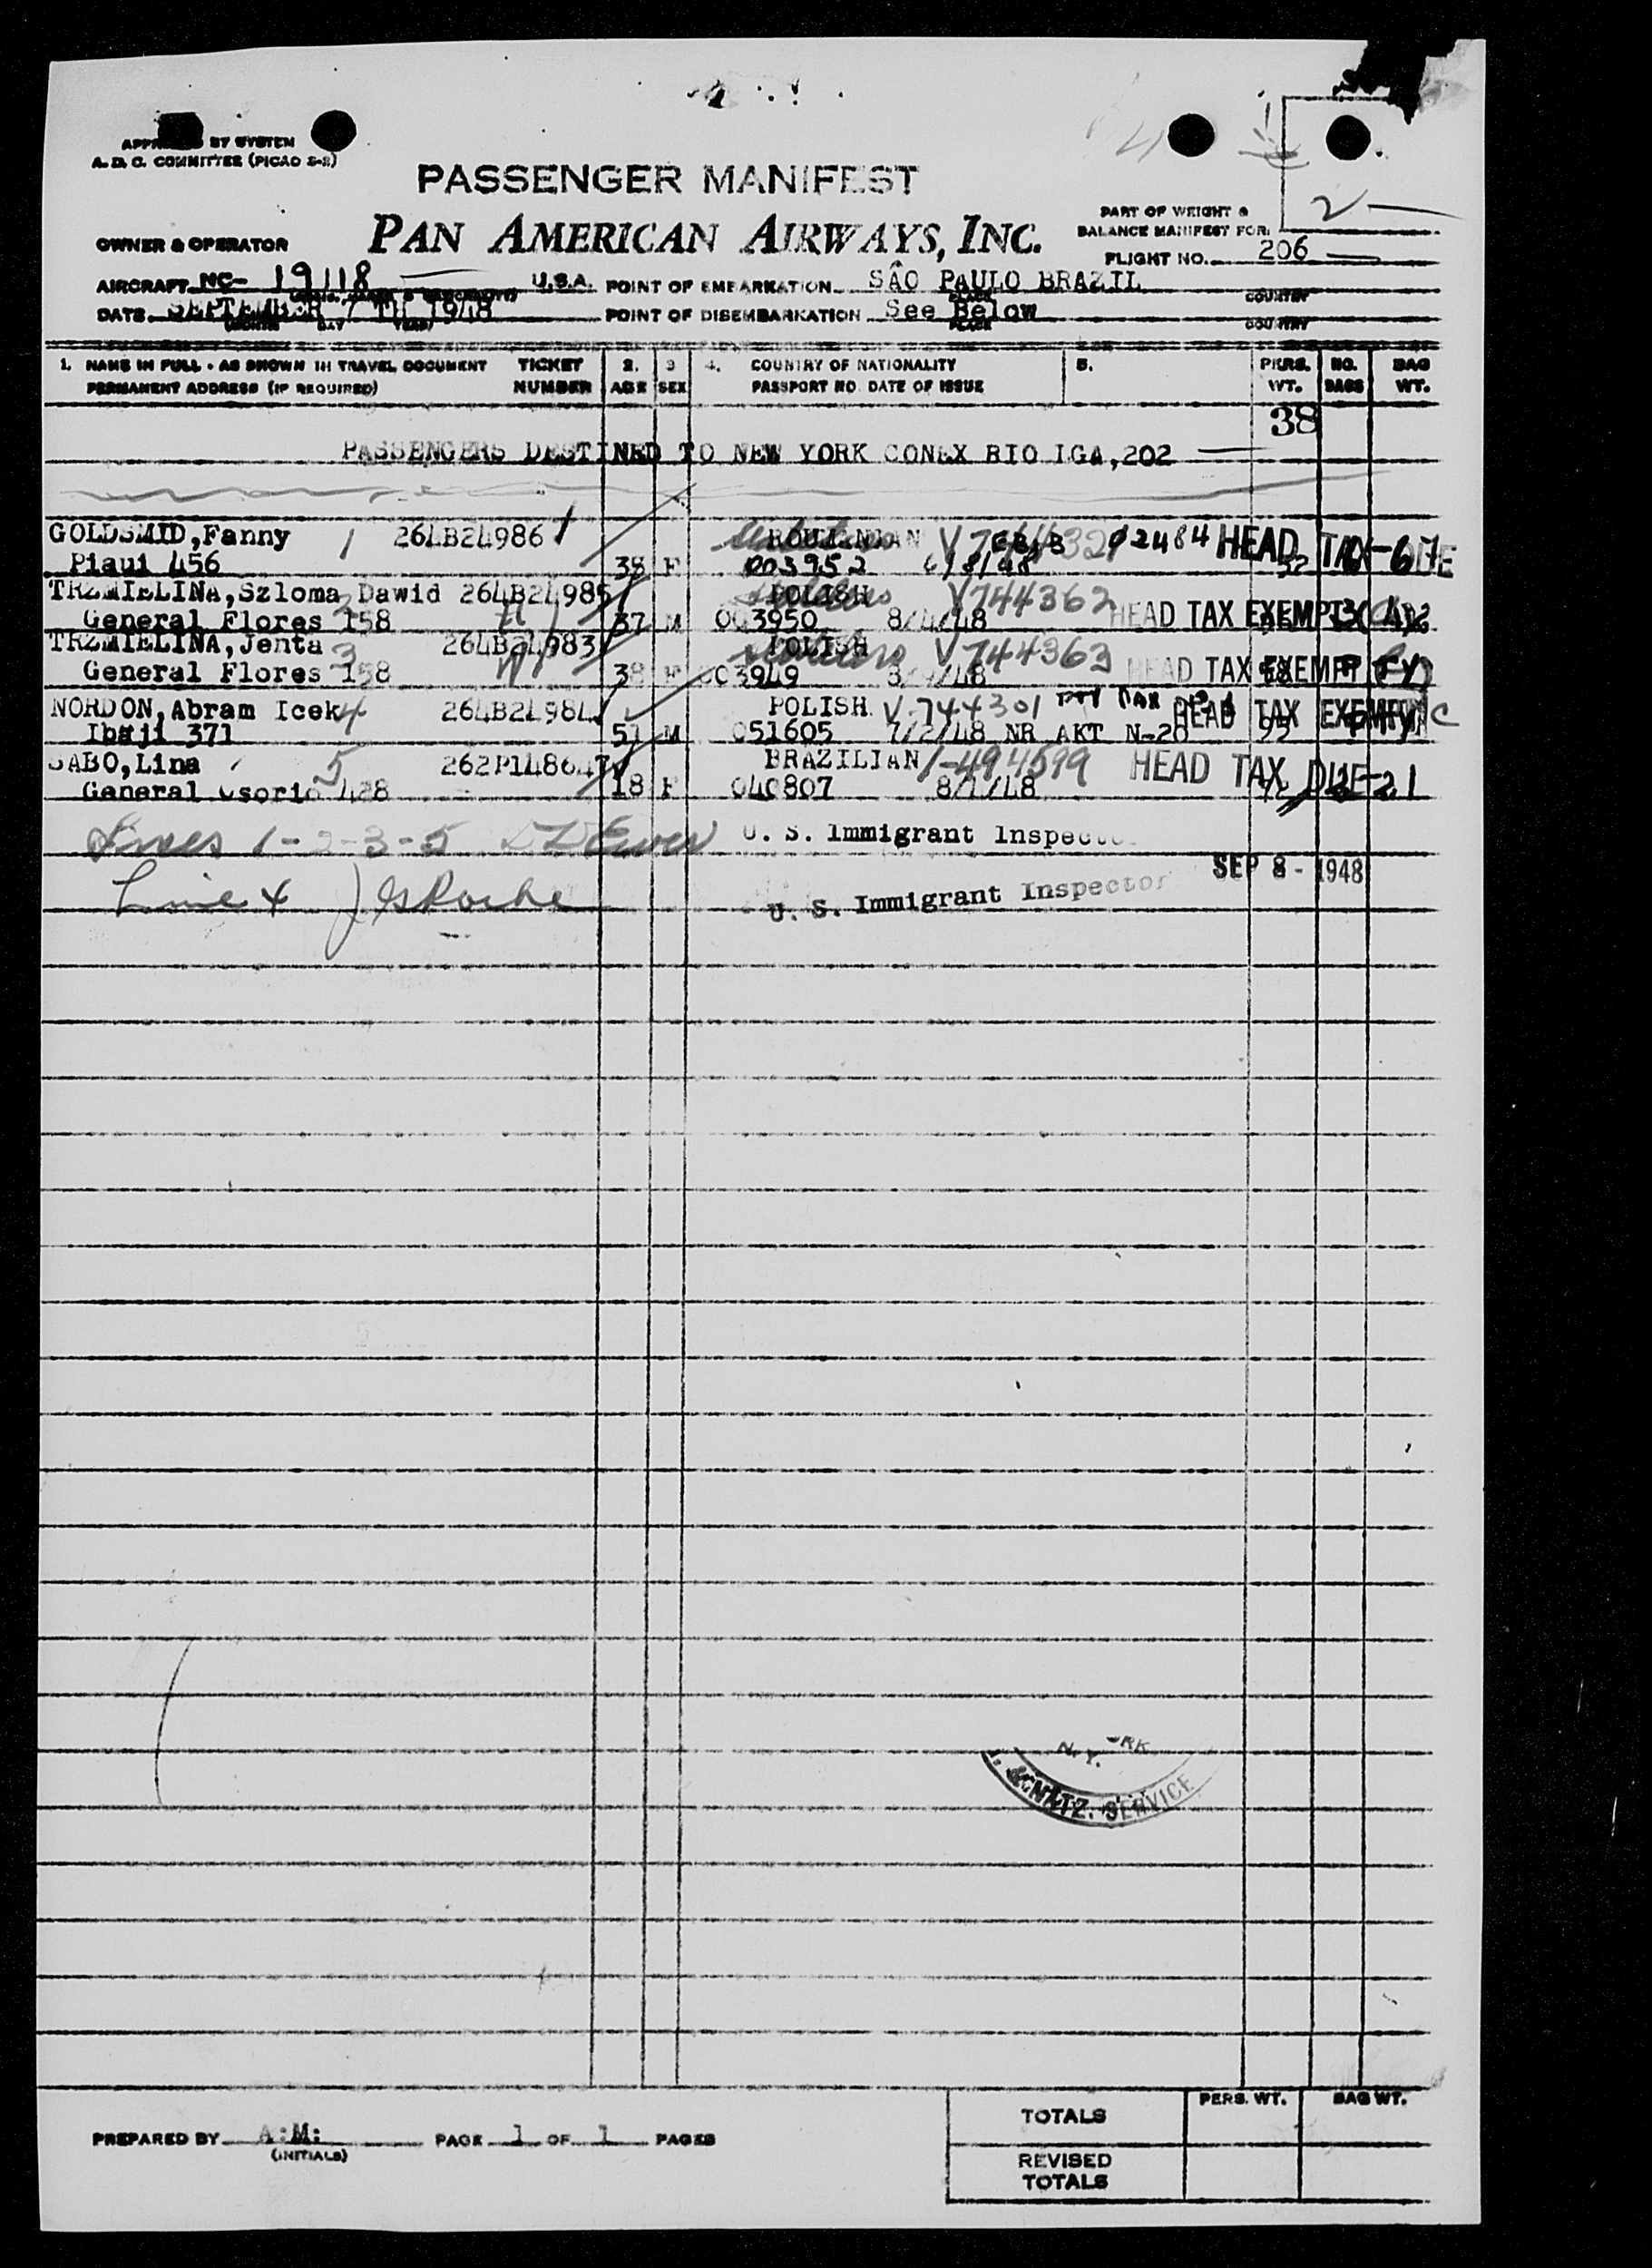 BY SYSTEM
A. D. C. COMMITTEE (PICAO S-R)
PASSENGER MANIFEST
PAN AMERICAN AIRWAYS, INC.
OWNER & OPERATOR
PART OF WEIGHT &
BALANCE MANIFEST FOR:
2
FLIGHT NO. 206
AIRCRAFT NC- 19118 U.S.A. POINT OF EMBARKATION SÃO PAULO BRAZIL
PLACE COUNTRY
DATE SEPTEMBER 7 TH 1948 POINT OF DISEMBARKATION See Below
(MONTH DAY YEAR) PLACE COUNTRY
1. NAME IN FULL - AS SHOWN IN TRAVEL DOCUMENT TICKET 2. 3 4. COUNTRY OF NATIONALITY 5. PERS. NO. BAG
PERMANENT ADDRESS (IF REQUIRED) NUMBER AGE SEX PASSPORT NO. DATE OF ISSUE WT. BAGS WT.
38
PASSENGERS DESTINED TO NEW YORK CONEX RIO IGA,202
GOLDSMID,Fanny 1 264B24986 02484 HEAD TAX
Piaui 456 38 F 003952 6/8/48 52
TRZMIELINA,Szloma Dawid 264B24985 POLISH V744362
General Flores 158 2 37 M 003950 HEAD TAX EXEMPT
TRZMIELINA,Jenta 3 264B24983 POLISH V744363
General Flores 158 38 F 003949 HEAD TAX EXEMPT
NORDON,Abram Icek 4 264B24984 POLISH V-744301 HEAD TAX EXEMPT
51 M 051605 7/2/48 NR AKT N-20 95
SABO,Lina 5 BRAZILIAN 1-494599 HEAD TAX DUE-21
General Osorio 428 18 F 040807 8/1/48
Lines 1-2-3-5 U. S. Immigrant Inspector
SEP 8 - 1948
Line 4 U. S. Immigrant Inspector
N.Y.
NATZ. SERVICE
PREPARED BY A:M: PAGE 1 OF 1 PAGES
(INITIALS)
PERS. WT. BAG WT.
TOTALS
REVISED
TOTALS